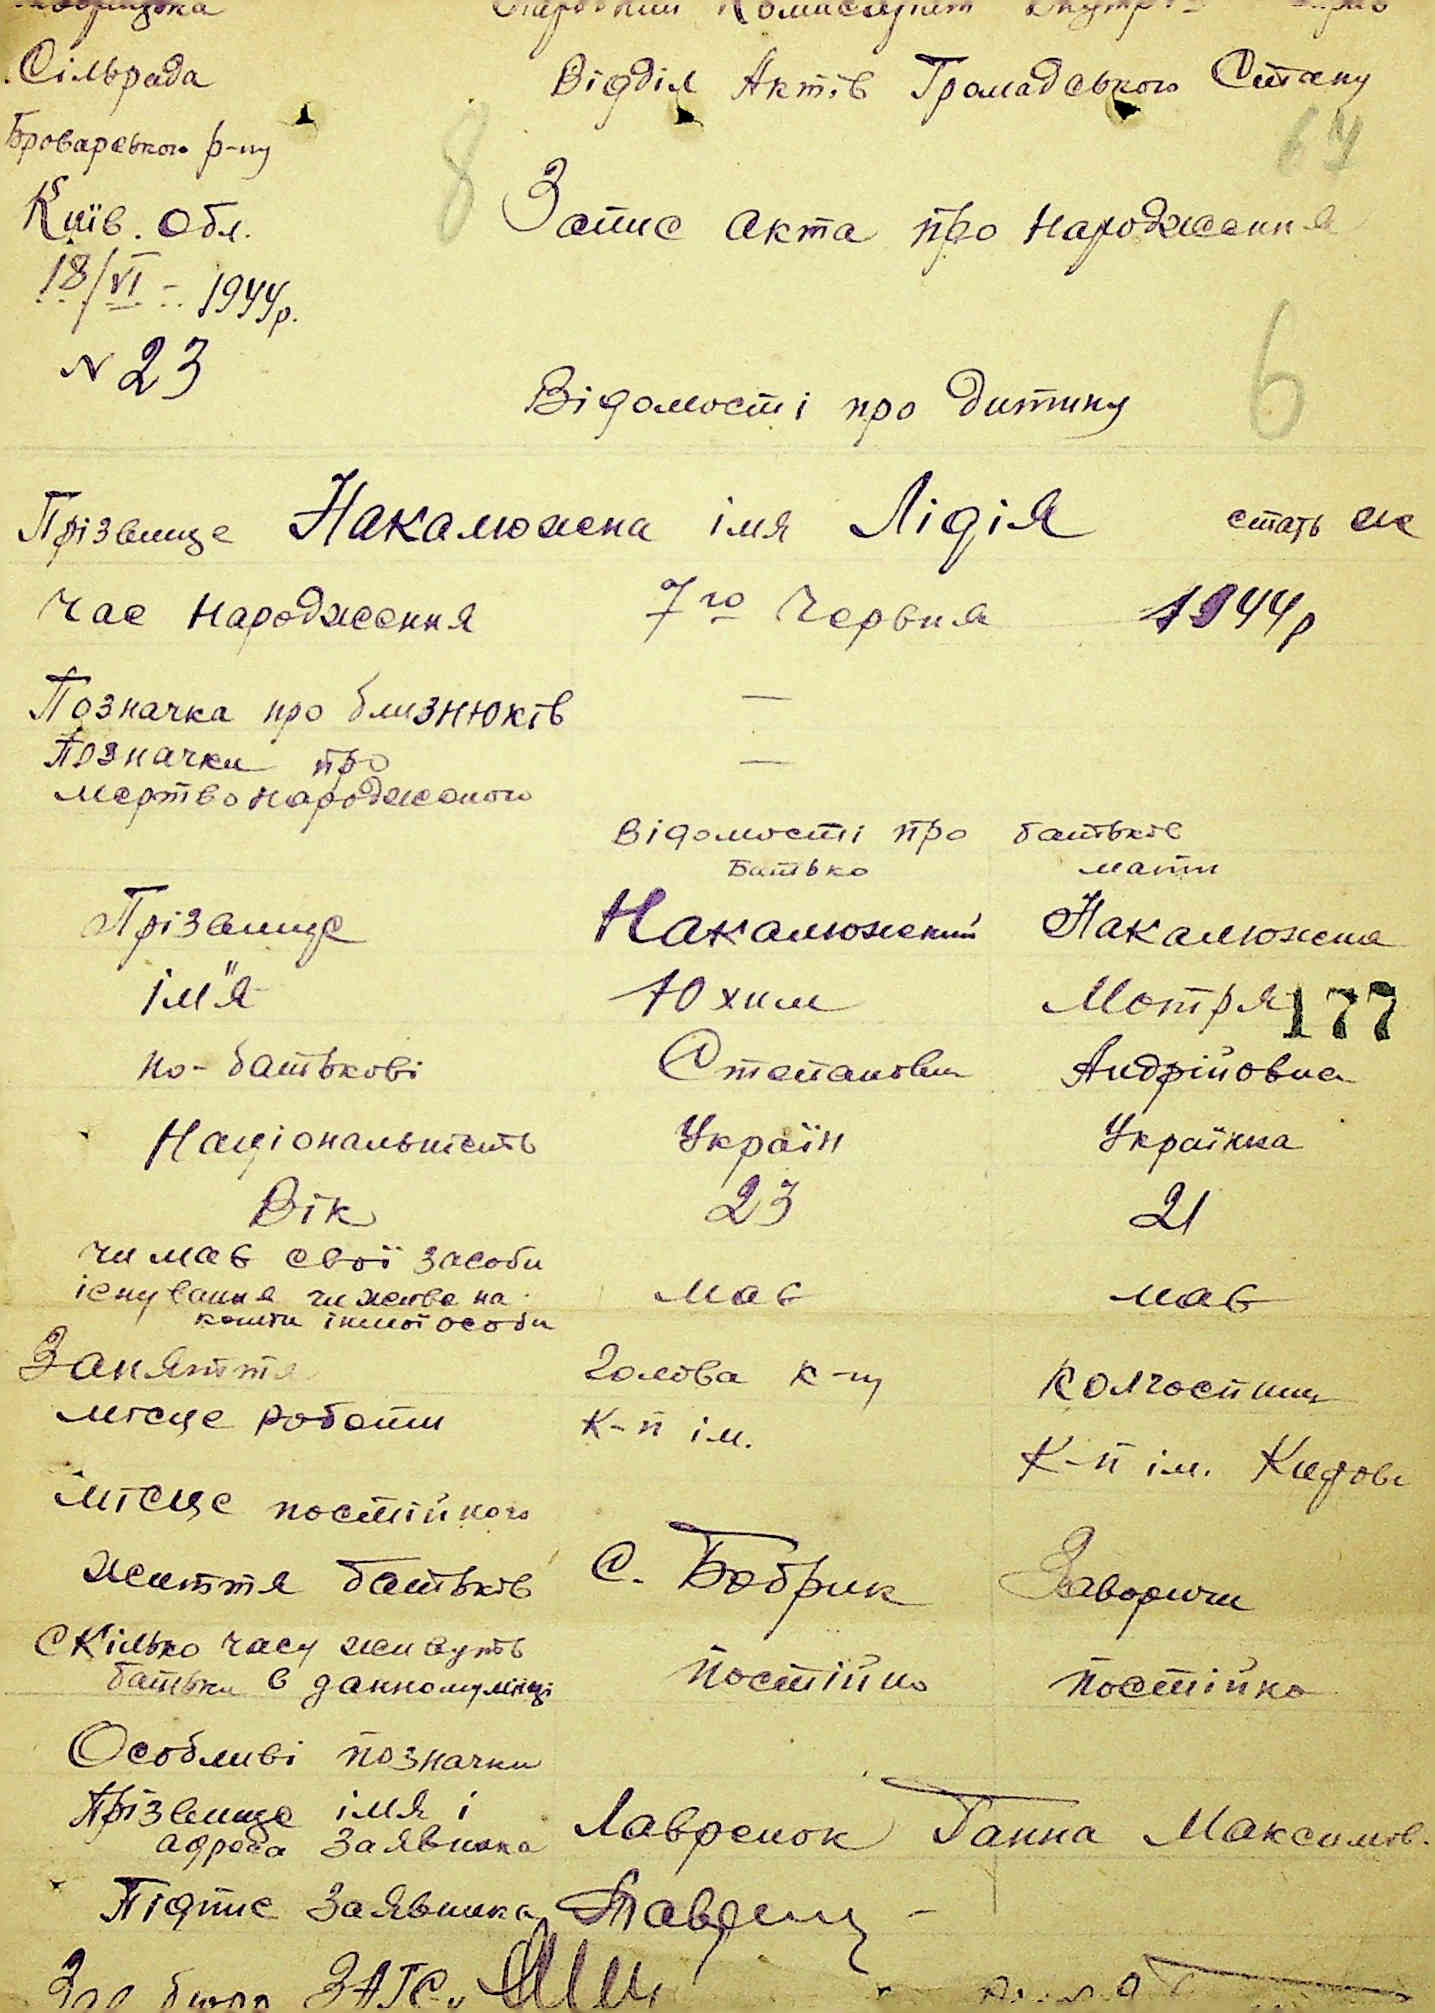 Сільрада
Відділ Актів Громадського Стану
Броварського р-ну
Київ. Обл.
8
67
Запис акта про народження
18/VI - 1944р.
N 23
6
Відомості про дитину
Прізвище Накалюжна імя Лідія стать ж
Час народження 7го Червня 1944р
Позначка про близнюків —
Позначки про —
мертвонародженого
Відомості про батьків
Батько мати
Прізвище Накалюжний Накалюжна
ім"я Юхим Мотря
177
по-батькові Степанович Андрійовна
Національність Україн Українка
Вік 23 21
чи має свої засоби
існування чи живе на має має
кошти іншої особи
Заняття Голова к-пу колгоспниця
місце роботи к-п ім.
К-п ім. Кірова
місце постійного
життя батьків с. Бобрик Заворичи
Скілько часу живуть
батьки в данному місці постійно постійно
Особливі позначки
Прізвище імя і
адреса заявника Лавренок Ганна Максимов.
Підпис заявника
Зав бюро ЗАГС